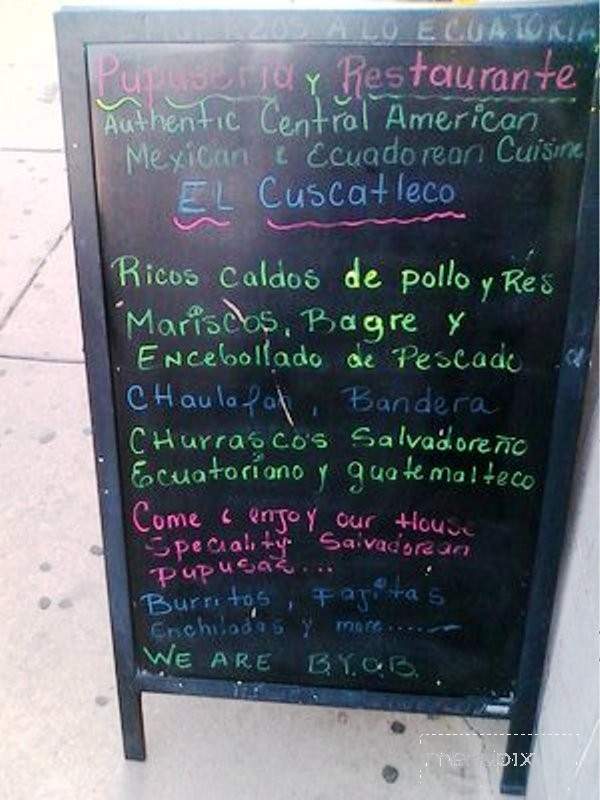 A LO ECUATORIA
Pupuseria y Restaurante
Authentic Central American
Mexican & Ecuadorean Cuisine
EL Cuscatleco
Ricos Caldos de pollo y Res
Mariscos, Bagre y
Encebollado de Pescado
CHaulafan, Bandera
CHurrascos Salvadoreño
Ecuatoriano y guatemalteco
Come & enjoy our House
Speciality Salvadorean
pupusas...
Burritos, Fajitas
Enchiladas y more......
WE ARE B.Y.O.B.
menupix